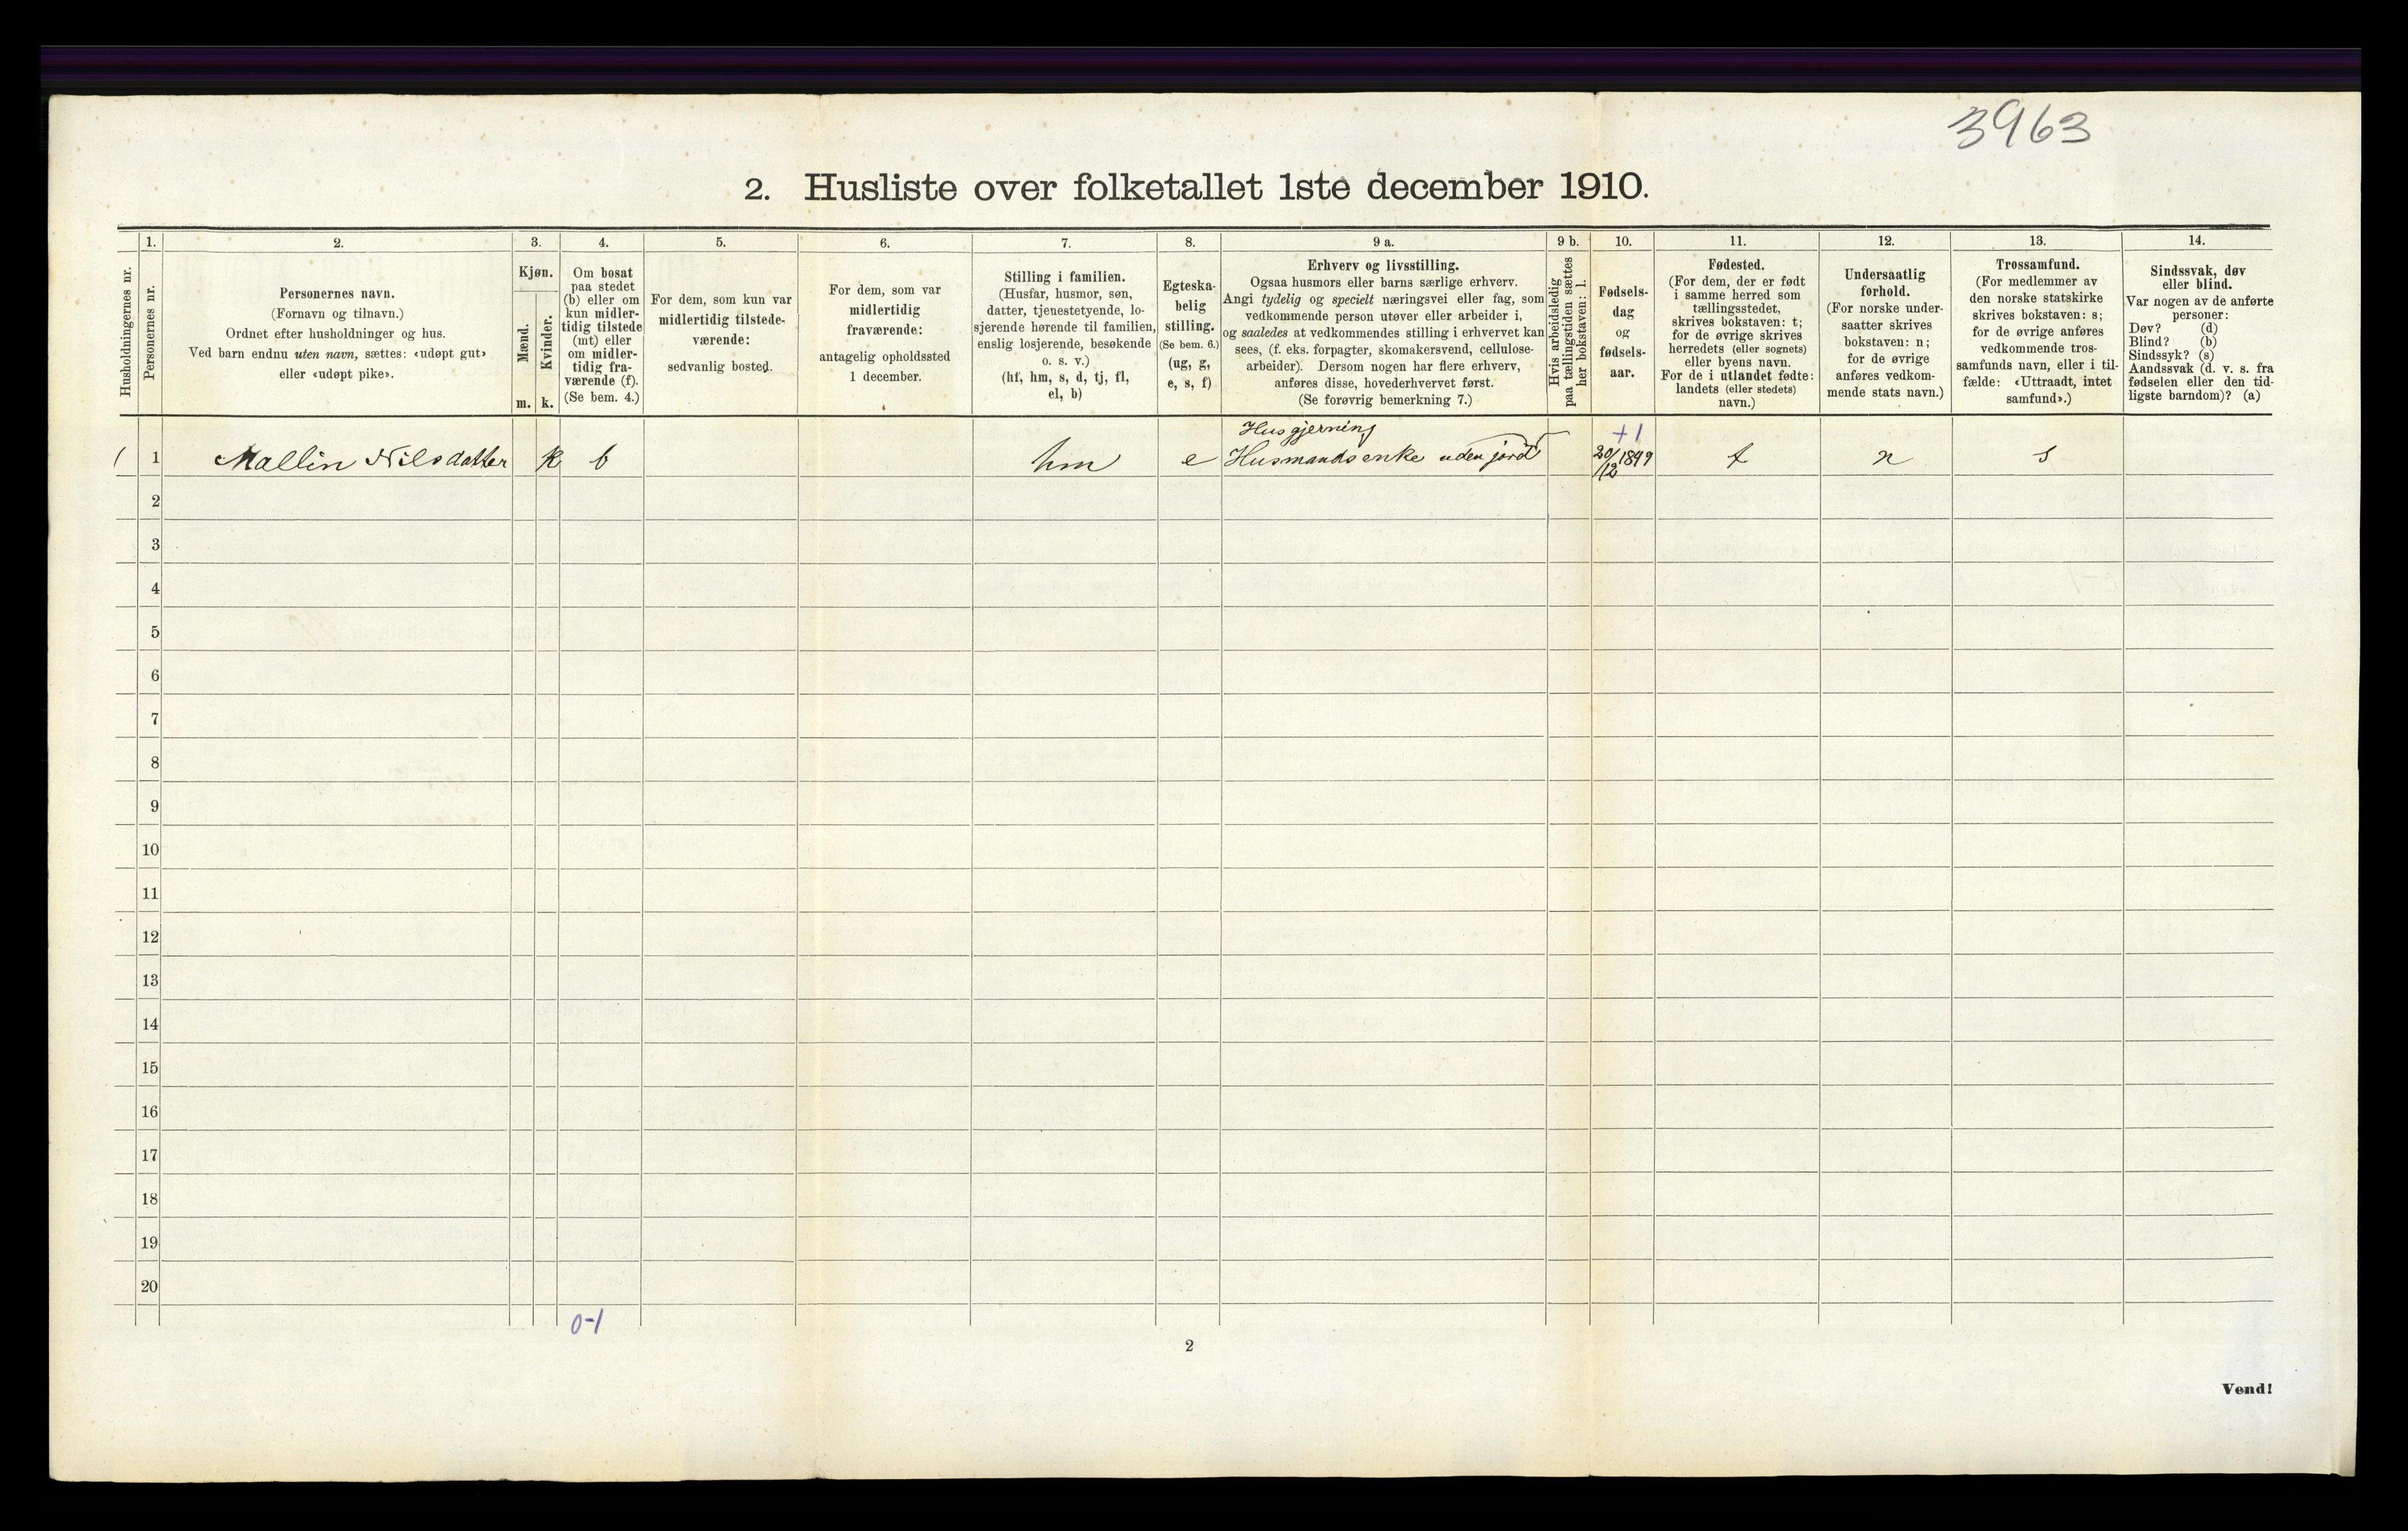 3963
2. Husliste over folketallet 1ste december 1910.
Husholdningernes nr.
1.
Personernes nr.
2.
Personernes navn.
(Fornavn og tilnavn.)
Ordnet efter husholdninger og hus.
Ved barn endnu uten navn, sættes: «udøpt gut»
eller «udøpt pike».
3.
Kjøn.
Mænd.
Kvinder.
m. k.
4.
Om bosat
paa stedet
(b) eller om
kun midler-
tidig tilstede
(mt) eller
om midler-
tidig fra-
værende (f).
(Se bem. 4.)
5.
For dem, som kun var
midlertidig tilstede-
værende:
sedvanlig bosted.
6.
For dem, som var
midlertidig
fraværende:
antagelig opholdssted
1 december.
7.
Stilling i familien.
(Husfar, husmor, søn,
datter, tjenestetyende, lo-
sjerende hørende til familien,
enslig losjerende, besøkende
o. s. v.)
(hf, hm, s, d, tj, fl,
el, b)
8.
Egteska-
belig
stilling.
(Se bem. 6.)
(ug, g,
e, s, f)
9 a.
Erhverv og livsstilling.
Ogsaa husmors eller barns særlige erhverv.
Angi tydelig og specielt næringsvei eller fag, som
vedkommende person utøver eller arbeider i,
og saaledes at vedkommendes stilling i erhvervet kan
sees, (f. eks. forpagter, skomakersvend, cellulose-
arbeider). Dersom nogen har flere erhverv,
anføres disse, hovederhvervet først.
(Se forøvrig bemerkning 7.)
9 b.
Hvis arbeidsledig
paa tællingstiden sættes
her bokstaven: l.
10.
Fødsels-
dag
og
fødsels-
aar.
11.
Fødested.
(For dem, der er født
i samme herred som
tællingsstedet,
skrives bokstaven: t;
for de øvrige skrives
herredets (eller sognets)
eller byens navn.
For de i utlandet fødte:
landets (eller stedets)
navn.)
12.
Undersaatlig
forhold.
(For norske under-
saatter skrives
bokstaven: n;
for de øvrige
anføres vedkom-
mende stats navn.)
13.
Trossamfund.
(For medlemmer av
den norske statskirke
skrives bokstaven: s;
for de øvrige anføres
vedkommende tros-
samfunds navn, eller i til-
fælde: «Uttraadt, intet
samfund».)
14.
Sindssvak, døv
eller blind.
Var nogen av de anførte
personer:
Døv? (d)
Blind? (b)
Sindssyk? (s)
Aandssvak (d. v. s. fra
fødselen eller den tid-
ligste barndom)? (a)
Husgjerning
+1
1 1 Mallin Nilsdatter k b hm e Husmandsenke uden jord 20/12 1849 t n s
2
3
4
5
6
7
8
9
10
11
12
13
14
15
16
17
18
19
20
0-1
2
Vend!